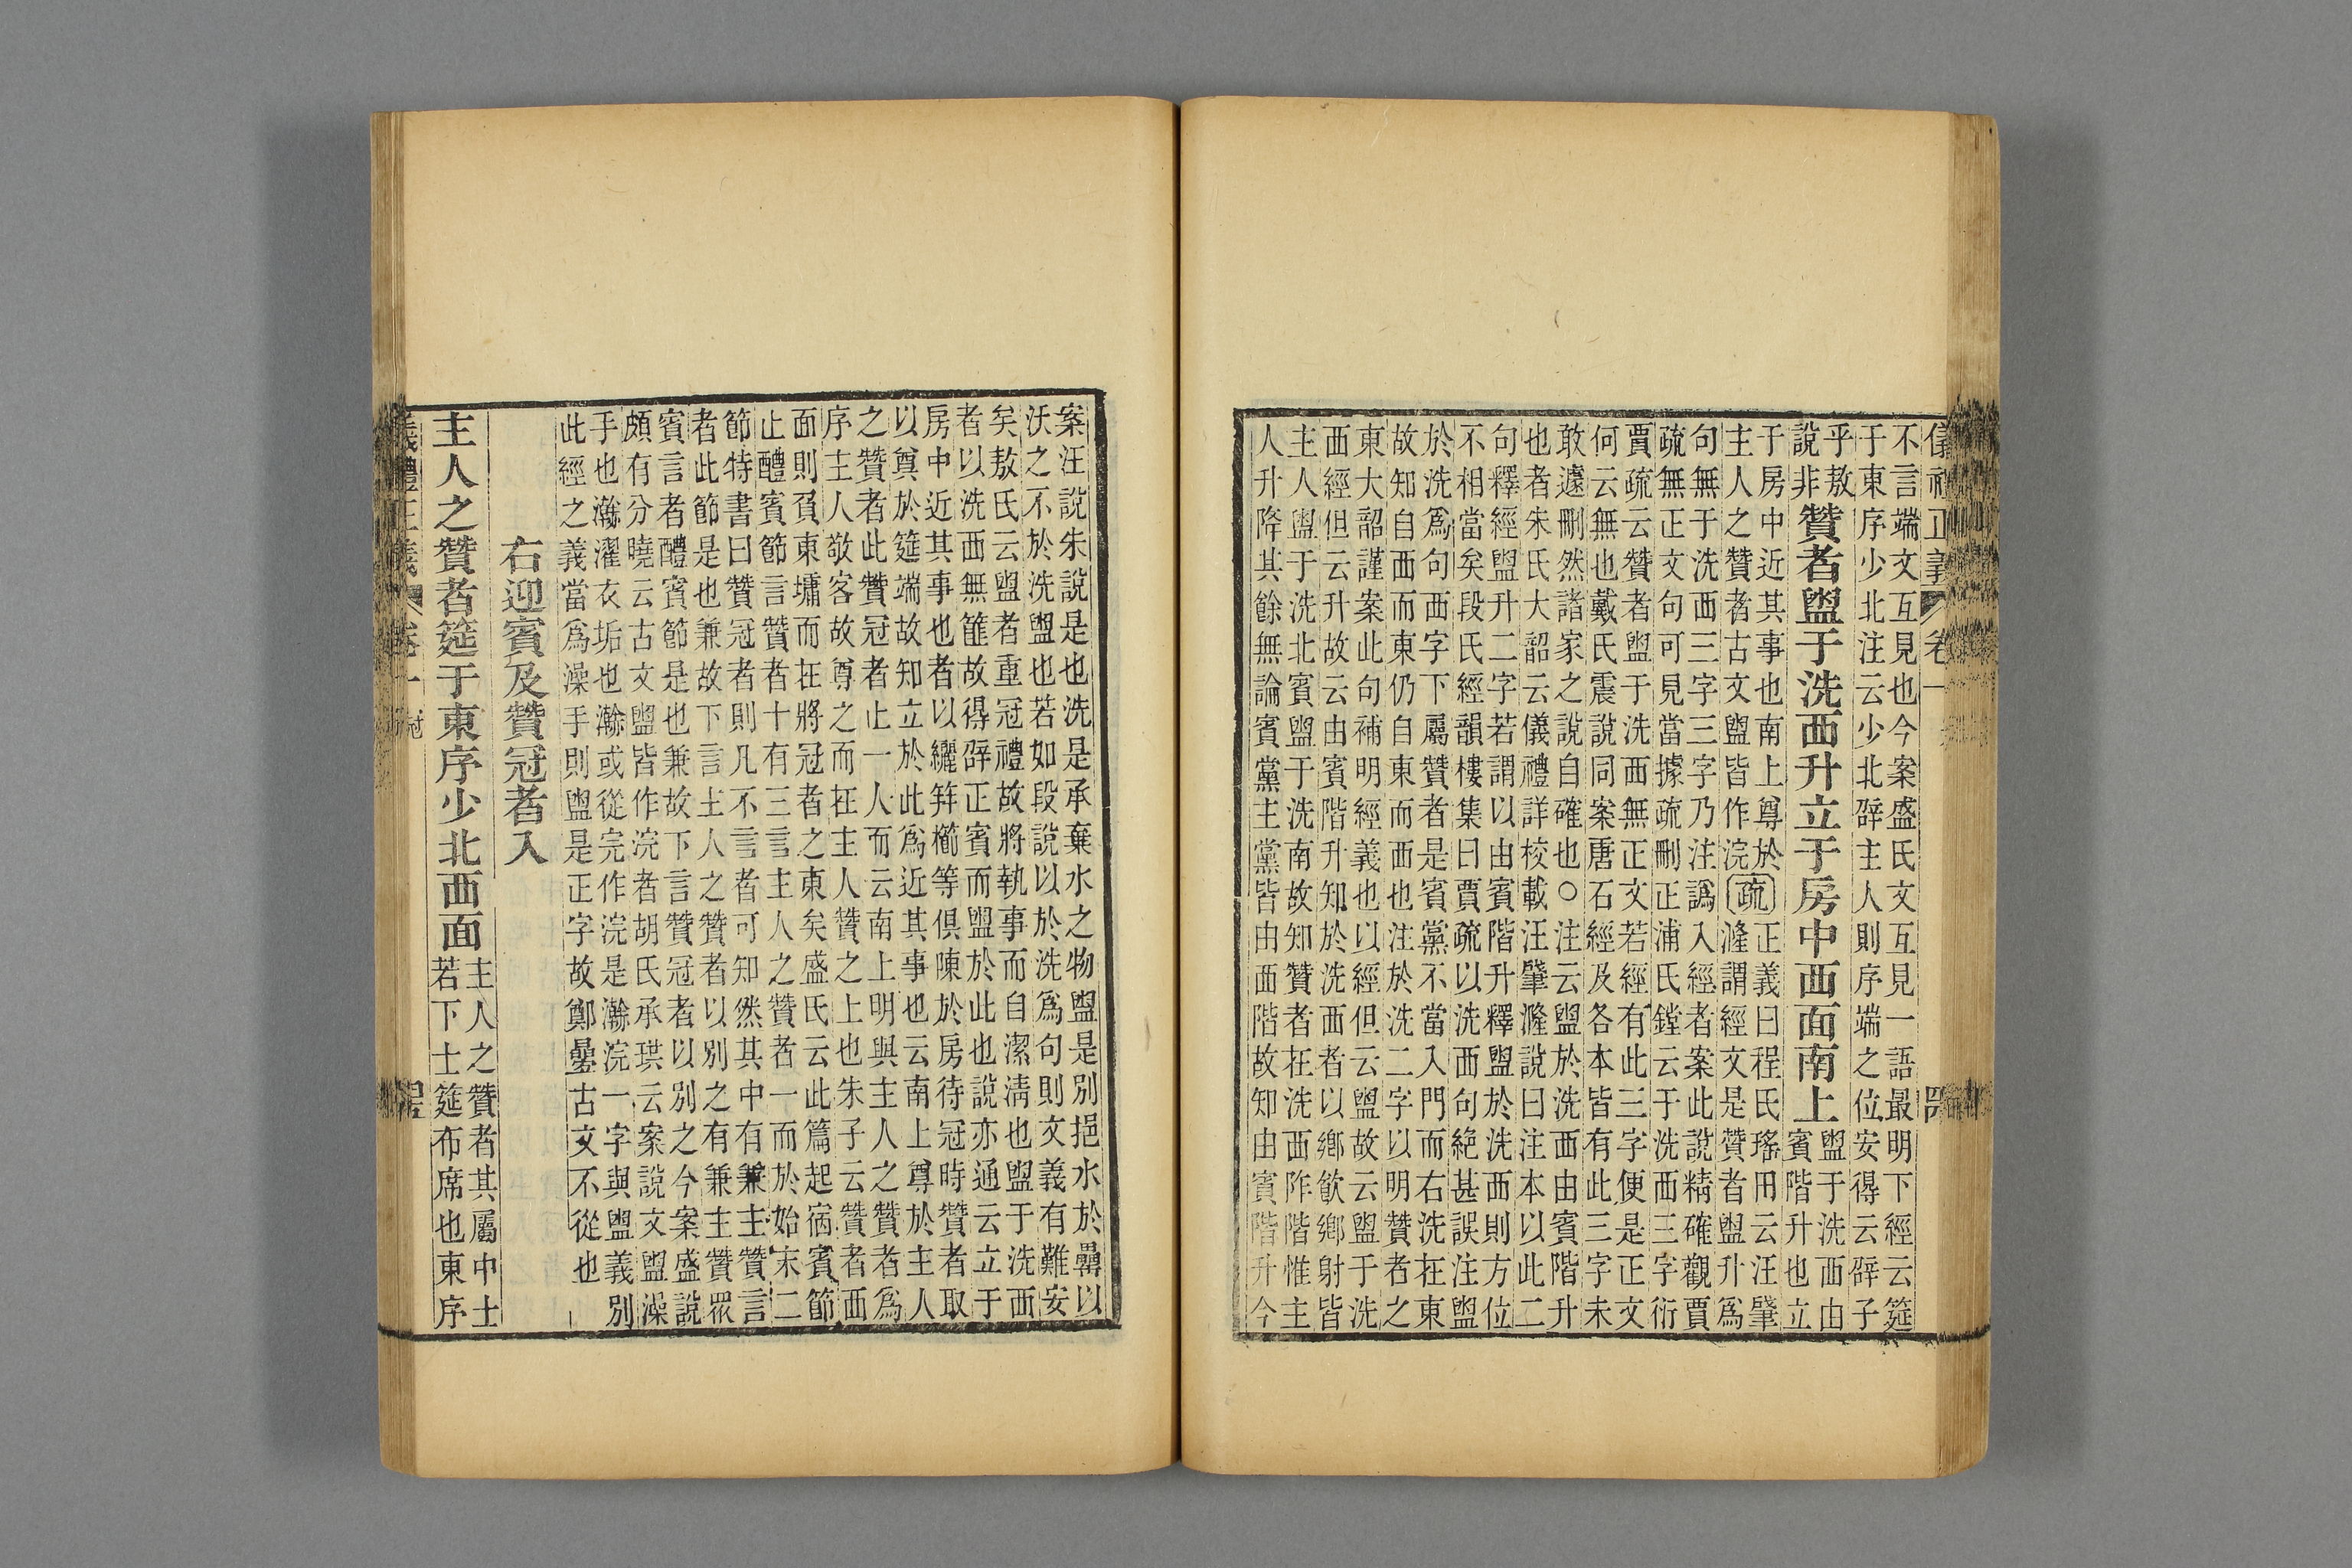 不言端文互見也今案盛氏文互見一語最明下經云筵
于東序少北注云少北辟主人則序端之位安得云辟子
乎敖
說非
贊者盥于洗西升立于房中西面南上
盥于洗西由
賓階升也立
于房中近其事也南上尊於
主人之贊者古文盥皆作浣
疏
正義曰程氏瑤田云汪肇
漋謂經文是贊者盥升爲
句無于洗西三字三字乃注譌入經者案此說精確觀賈
疏無正文句可見當據疏刪正浦氏鏜云于洗西三字衍
賈疏云贊者盥于洗西無正文若經有此三字便是正文
何云無也戴氏震說同案唐石經及各本皆有此三字未
敢遽刪然諸家之說自確也○注云盥於洗西由賓階升
也者朱氏大韶云儀禮詳校載汪肇漋說曰注本以此二
句釋經盥升二字若謂以由賓階升釋盥於洗西則方位
不相當矣段氏經韻樓集曰賈疏以洗西句絕甚誤注盥
於洗爲句西字下屬贊者是賓黨不當入門而右洗在東
故知自西而東仍自東而西也注於洗二字以明贊者之
東大韶謹案此句補明經義也以經但云盥故云盥于洗
西經但云升故云由賓階升知於洗西者以鄉飲鄉射皆
主人盥于洗北賓盥于洗南故知贊者在洗西阼階惟主
人升降其餘無論賓黨主黨皆由西階故知由賓階升今
案汪說朱說是也洗是承棄水之物盥是別挹水於罍以
沃之不於洗盥也若如段說以於洗爲句則文義有難安
矣敖氏云盥者重冠禮故將執事而自潔淸也盥于洗西
者以洗西無篚故得辟正賓而盥於此也說亦通云立于
房中近其事也者以纚笄櫛等俱陳於房待冠時贊者取
以奠於筵端故知立於此爲近其事也云南上尊於主人
之贊者此贊冠者止一人而云南上明與主人之贊者爲
序主人敬客故尊之而在主人贊之上也朱子云贊者西
面則負東墉而在將冠者之東矣盛氏云此篇起宿賓節
止醴賓節言贊者十有三言主人之贊者一而於始末二
節特書曰贊冠者則凡不言者可知然其中有兼主贊言
者此節是也兼故下言主人之贊者以別之有兼主贊眾
賓言者醴賓節是也兼故下言贊冠者以別之今案盛說
頗有分曉云古文盥皆作浣者胡氏承珙云案說文盥澡
手也瀚濯衣垢也瀚或從完作浣是瀚浣一字與盥義別
此經之義當爲澡手則盥是正字故鄭疊古文不從也
右迎賓及贊冠者入
主人之贊者筵于東序少北西面
主人之贊者其屬中士
若下士筵布席也東序
儀禮正義 卷一 冠